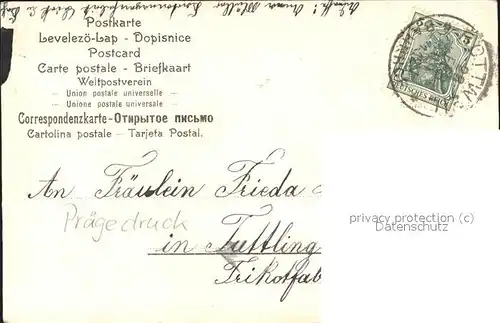 Postkarte
Levelezö-Lap - Dopisnice
Postcard
Carte postale - Briefkaart
Weltpostverein
– Union postale universelle –
– Unione postale universale –
Correspondenzkarte – Открытое письмо
Cartolina postale – Tarjeta Postal.
DEUTSCHES REICH
An Fräulein Frieda
Prägedruck
in Tuttling
Trikotfab
privacy protection (c)
Datenschutz